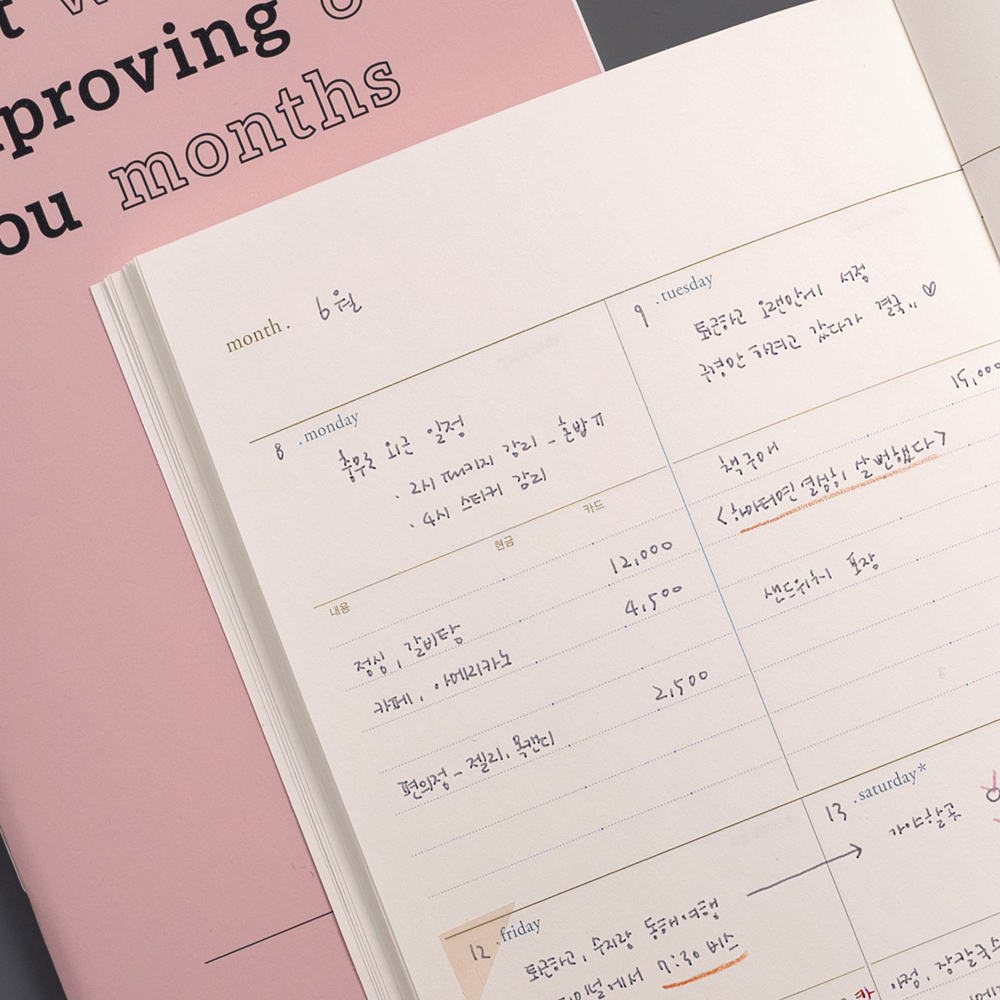 proving
ou months
month. 6월
8 .monday
충무로 외근 일정
· 2시 패키지 감리 - 혼밥ㅠ
· 4시 스티커 감리
내용 현금 카드
점심, 갈비탕 12,000
카페, 아메리카노 4,500
편의점 - 젤리, 목캔디 2,500
9 .tuesday
퇴근하고 오랜만에 서점
구경만 하려고 갔다가 결국.. ♡
15,000
책구매
<하마터면 열심히 살 뻔했다>
샌드위치 포장
12 .friday
퇴근하고, 수지랑 동해여행
7:30 버스
13 .saturday*